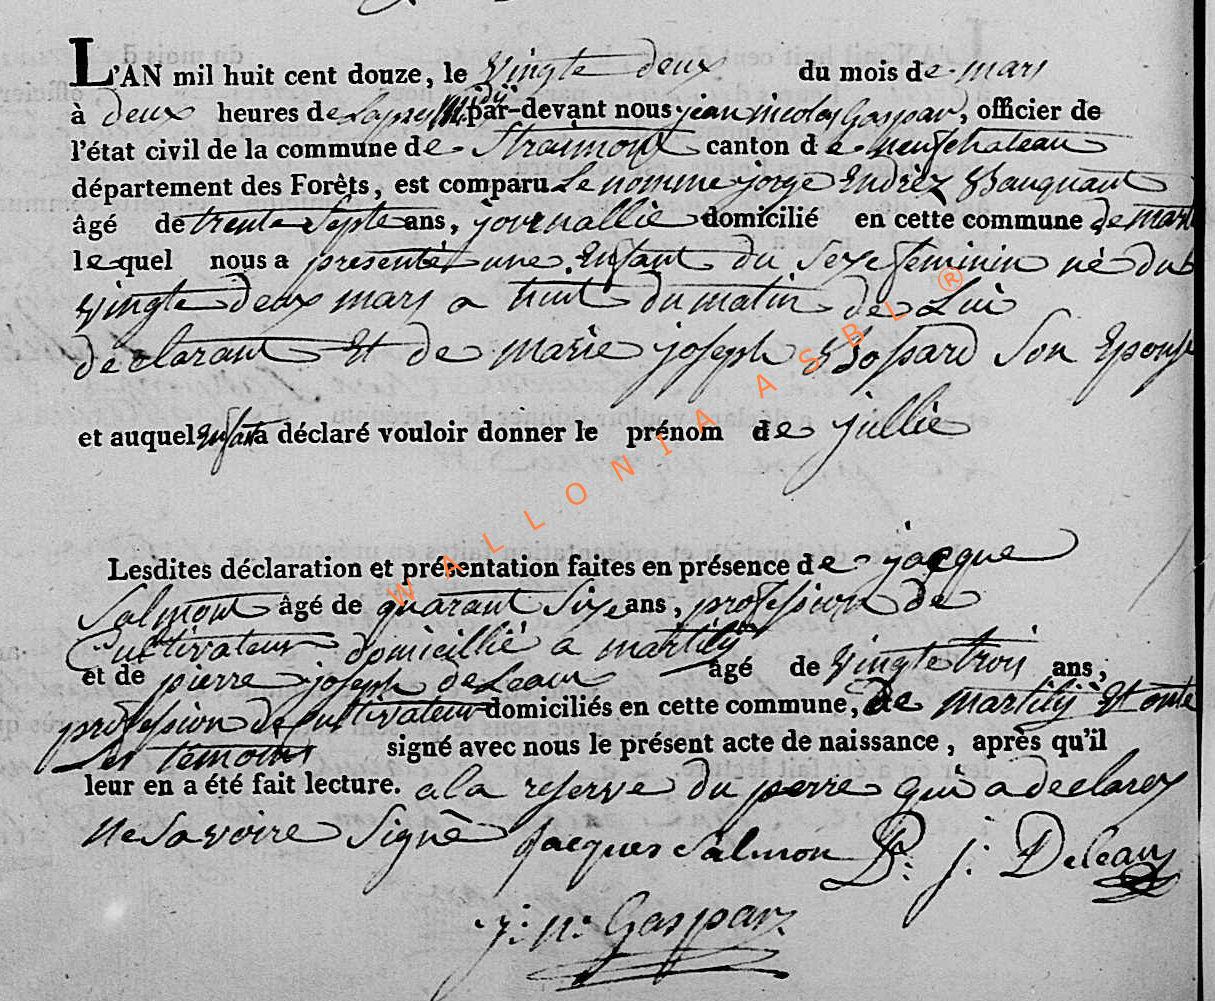 L'AN mil huit cent douze, le vingte deux du mois de mars
à deux heures de lapres midy par-devant nous jean nicolas Gaspar, officier de
l'état civil de la commune de Straimont canton de neufchateau
département des Forêts, est comparu Le nomme jorge Endrèz
âgé de trente septe ans, journallie domicilié en cette commune de
lequel nous a presenté une Enfant du sexe feminin né du
vingte deux mars a huit du matin de Lui
déclarant Et de marie joseph Bossard son Epouse
et auquel Enfant a déclaré vouloir donner le prénom de jullie
Lesdites déclaration et présentation faites en présence de jacque
Salmont âgé de quarant sixe ans, profession de
Cultivateur domicillié a martilÿ
et de pierre joseph deLeaux âgé de vingte trois ans,
profession de Cultivateur domiciliés en cette commune, de martilÿ Et onte
les temoins signé avec nous le présent acte de naissance, après qu'il
leur en a été fait lecture. a la reserve du perre qui a declarez
Ne savoire signè Jacques salmon P: j: Deleaux
j: n: Gaspar
WALLONIA ASBL ®